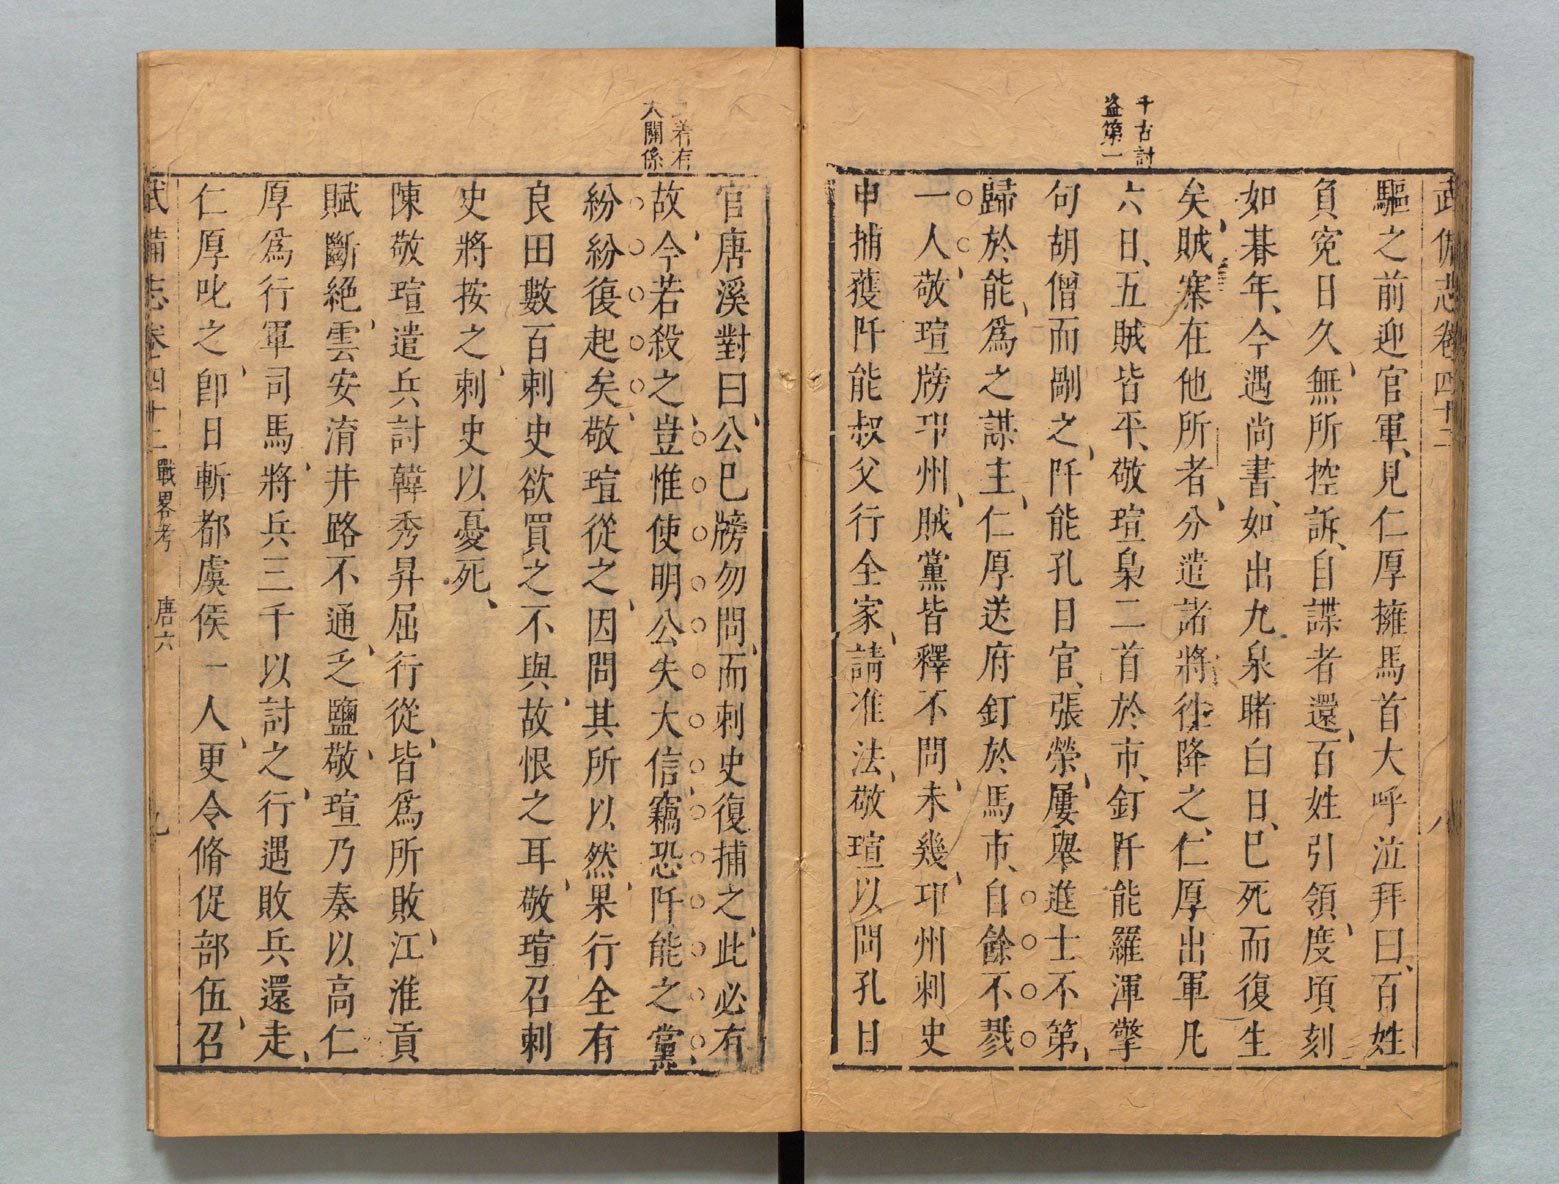 武備志卷四十二
八
千古討
盜第一
驅之前迎官軍見仁厚擁馬首大呼泣拜曰百姓
負寃日久無所控訴自諜者還百姓引領度頃刻
如朞年今遇尚書如出九泉睹白日已死而復生
矣賊寨在他所者分遣諸將往降之仁厚出軍凡
六日五賊皆平敬瑄梟二首於市釘阡能羅渾擎
句胡僧而剮之阡能孔目官張榮屢舉進士不第
歸於能爲之謀主仁厚送府釘於馬市自餘不戮
一人敬瑄牓邛州賊黨皆釋不問未幾邛州刺史
申捕獲阡能叔父行全家請准法敬瑄以問孔目
官唐溪對曰公已牓勿問而刺史復捕之此必有
故今若殺之豈惟使明公失大信竊恐阡能之黨
紛紛復起矣敬瑄從之因問其所以然果行全有
良田數百刺史欲買之不與故恨之耳敬瑄召刺
史將按之刺史以憂死
陳敬瑄遣兵討韓秀昇屈行從皆爲所敗江淮貢
賦斷絕雲安淯井路不通乏鹽敬瑄乃奏以高仁
厚爲行軍司馬將兵三千以討之行遇敗兵還走
仁厚叱之卽日斬都虞侯一人更令脩促部伍召
著有
大關係
武備志卷四十二 戰畧考 唐六
九